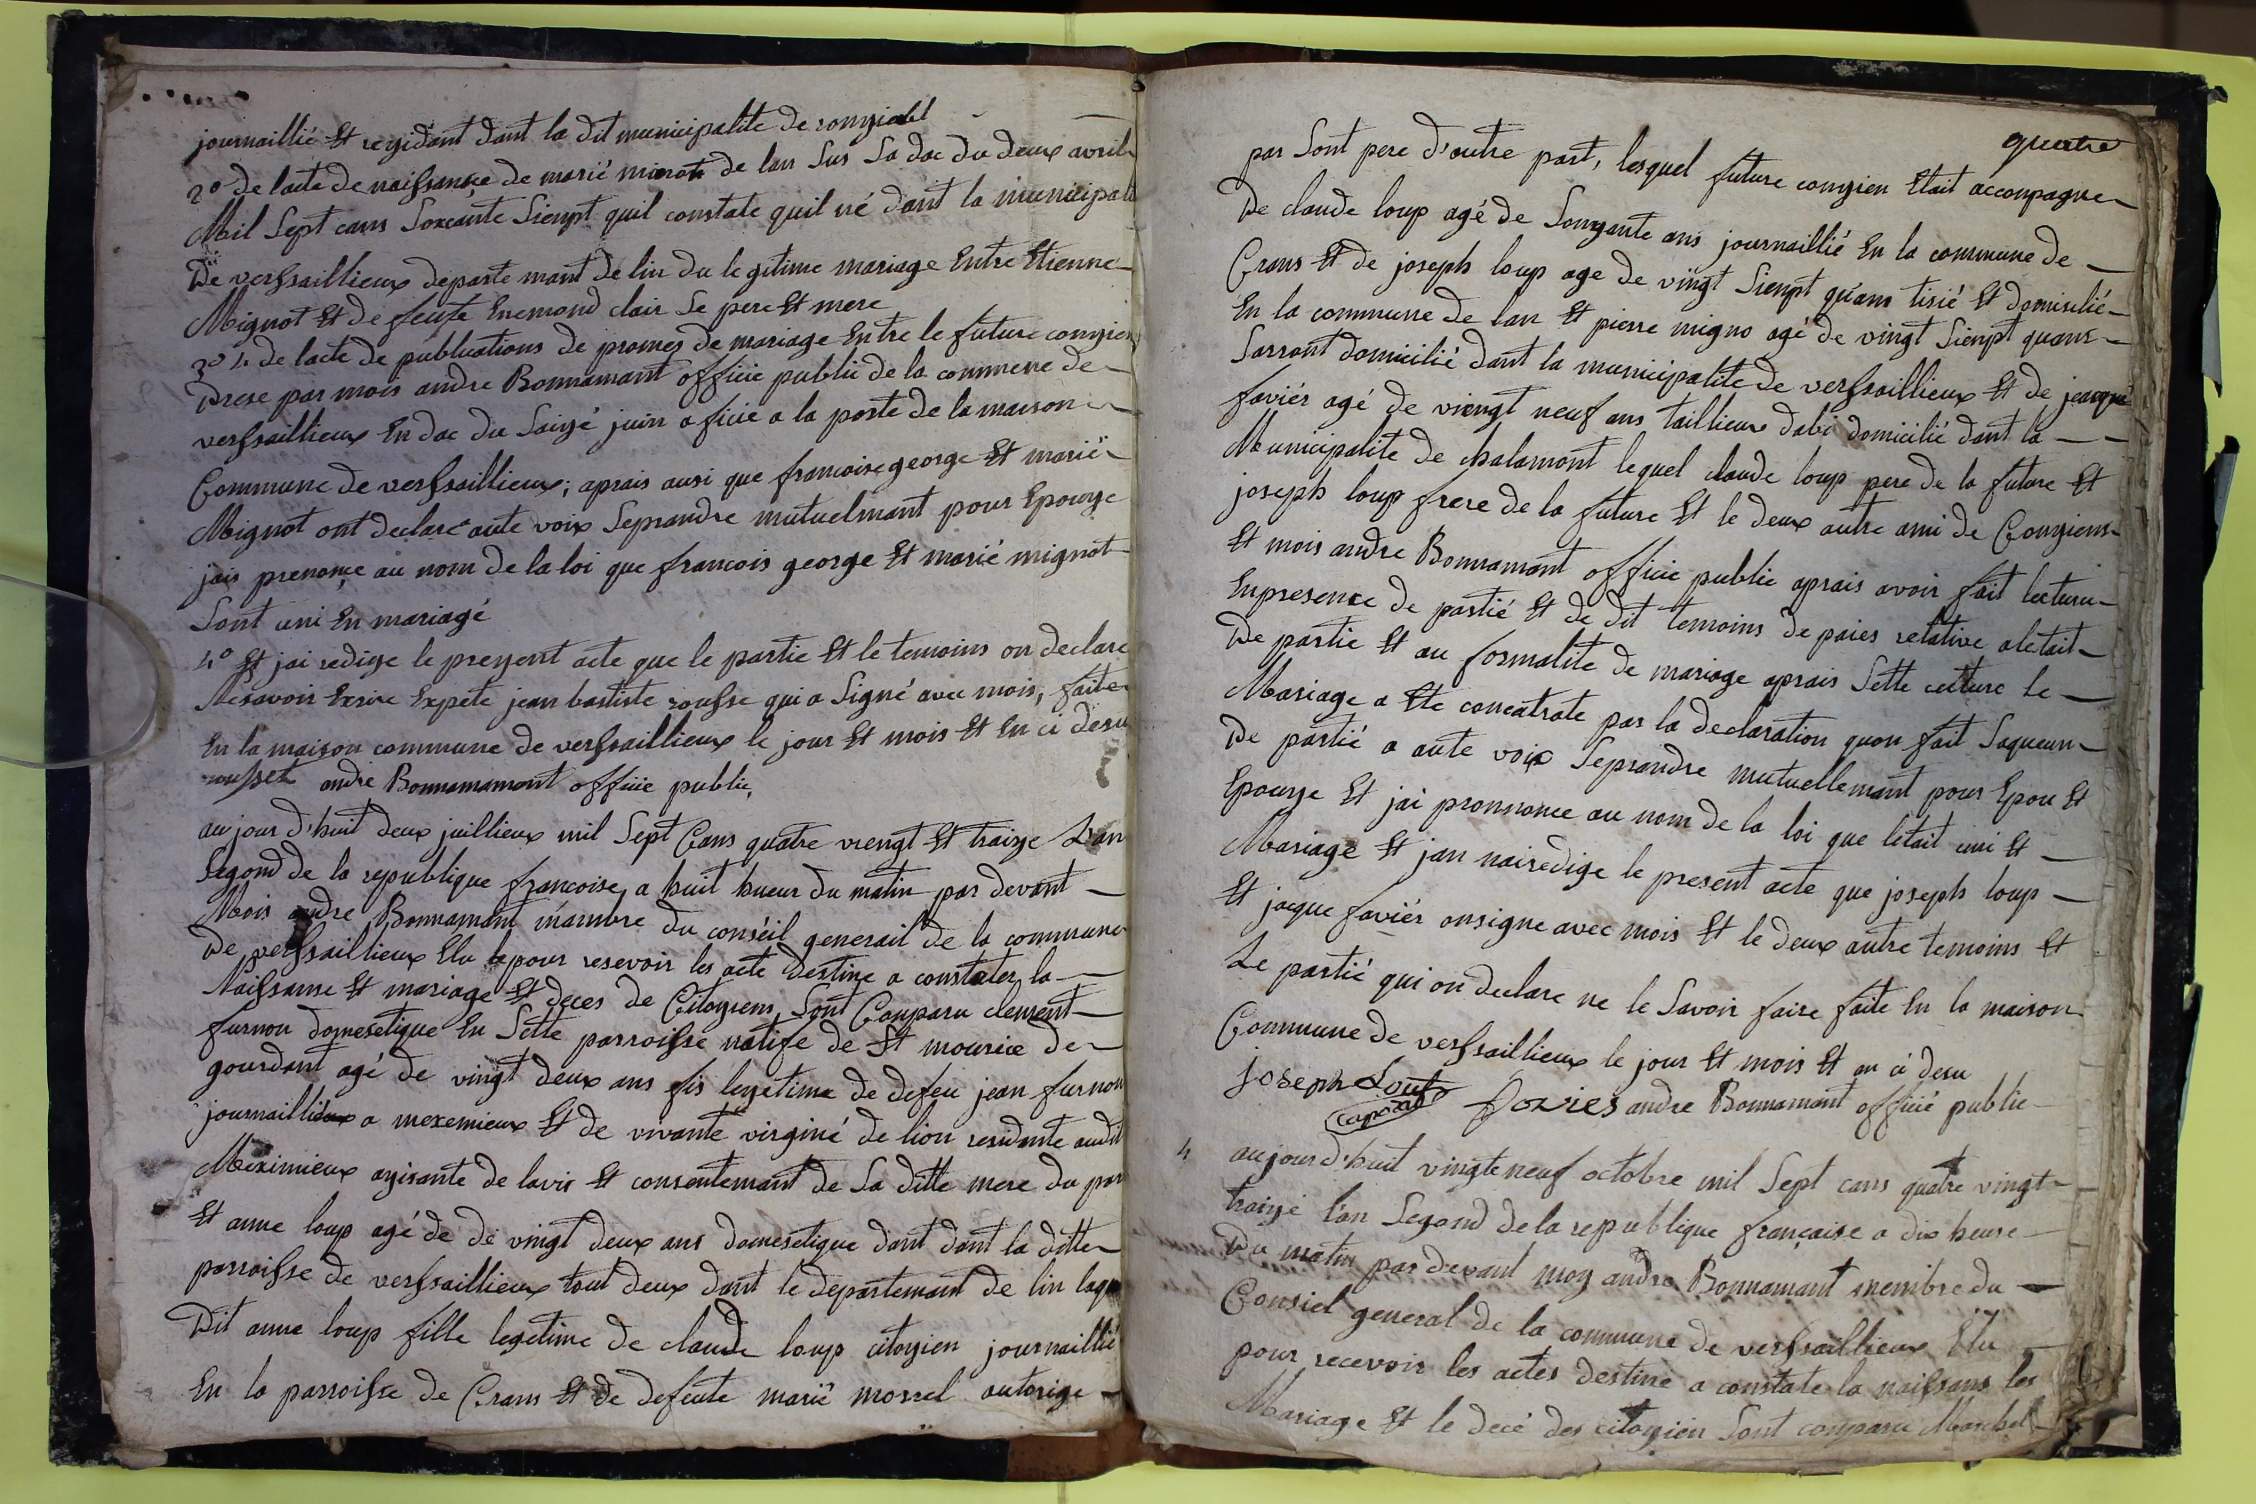 journaillié Et regidant dant la dit municipalite de
2° de lacte de naissançe de marié de lan Sus Sa dac du deux avril
Mil Sept cans Soxcante Sienpt quil constate quil né dant la municipali
De versaillieux departe mant de lin du legitime mariage Entre Etienne
Mignot Et de feute Enemond clair Se pere Et mere
3° de lacte de publications de promes de mariage Entre le future congien
Drese par mois andre Bonnamant officie public de la commune de
versaillieux En dac du Saizé juin a ficie a la porte de la maison
Commune de versaillieux; aprais ausi que francoise george Et marié
Mignot ont declaré aute voix Seprandre mutuelmant pour Epouze
jais prenonçe au nom de la loi que francois george Et marié mignot
Sont uni En mariagé
4° Et jai redige le prezent acte que le partie Et le temoins on declare
Nesavoir Exrire Expete jean bastiste rousse qui a Signé avec mois, faite
En la maison commune de versaillieux le jour Et mois Et En ci desu
rousset andre Bonnamamont officie public,
aujour d'huit deux juillieux mil Sept Cans quatre viengt Et traize L'an
Segond de la republique francoise, a huit hueur du matin par devant
Mois andre Bonnamant mambre du conséil generail de la commune
De versaillieux Elu le pour resevoir les acte destine a constater la
Naissanse Et mariage Et deces de Citoyens, Sont Conparu clement
furnon domesetique En Sette parroisse natife de St mourice de
gourdant agé de vingt deux ans fis legetime de defeu jean furnon
journaillieux a mexemieux Et de vivante virginé de lion residante audit
Meximieux agisante de lavis Et consentemant de Sa ditte mere du par
Et anne loup agé de de vingt deux ans domesetique dant dant la ditte
parroisse de versaillieux tout deux dant le departemant de lin laque
Dit anne loup fille legetime de claude loup citoyien journaillié
En la parroisse de Crans Et de defeute marié morrel autorize
quatre
par Sont pere d'autre part, lesquel future congien Etait acconpagne
De claude loup agé de Songante ans journaillié En la commune de
Crans Et de joseph loup age de vingt Sienpt quans tisié Et domicilié
En la commune de lan Et pierre migno agé de vingt Sienpt quans
Sarront domicilié dant la municipalite de versaillieux Et de jeacque
faviér agé de viengt neuf ans taillieur dabi domicilié dant la
Municipalite de chalamont lequel claude loup pere de la future Et
joseph loup frere de la future Et le deux autre ami de Congiens
Et mois andre Bonnamant officie public aprais avoir fait lecture
Enpresence de partié Et de dit temoins de paies relative aletait
De partie Et au formalite de mariage aprais Sette cecture le
Mariage a Ete concatrate par la declaration quon fait Saqueun
De partié a aute voix Seprandre mutuellemant pour Epou Et
Epouze Et jai pronnonce au nom de la loi que letait uni Et
Mariage Et jan nairedige le present acte que joseph loup
Et jacque faviér onsigne avec mois Et le deux autre temoins Et
Le partié qui on declare ne le Savoir faire faite En la maison
Commune de versaillieux le jour Et mois Et an ci desu
joseph Loup
caporal favier andre Bonnamant officié public
4 aujourd'huit vingte neuf octobre mil Sept cans quatre vingt
traize l'an Segond de la republique française a dix heure
Du matin par devant moy andre Bonnamant membre du
Consiel general de la commune de versaillieux Elu
pour recevoir les actes destine a constate la naissans les
Mariage Et le decé des citoyien Sont conparu